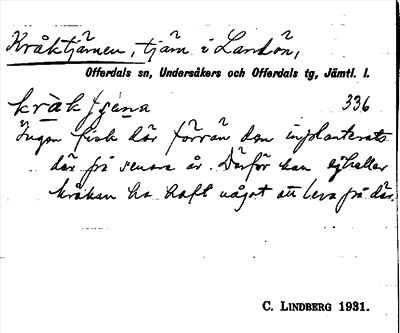 Kråktjärnen, tjärn i Landön,
Offerdals sn, Undersåkers och Offerdals tg, Jämtl. l.
336
Ingen fisk där förrän den inplanterats
där på senare år. Därför kan ej heller
kråkan ha haft något att leva på där.
C. LINDBERG 1931.